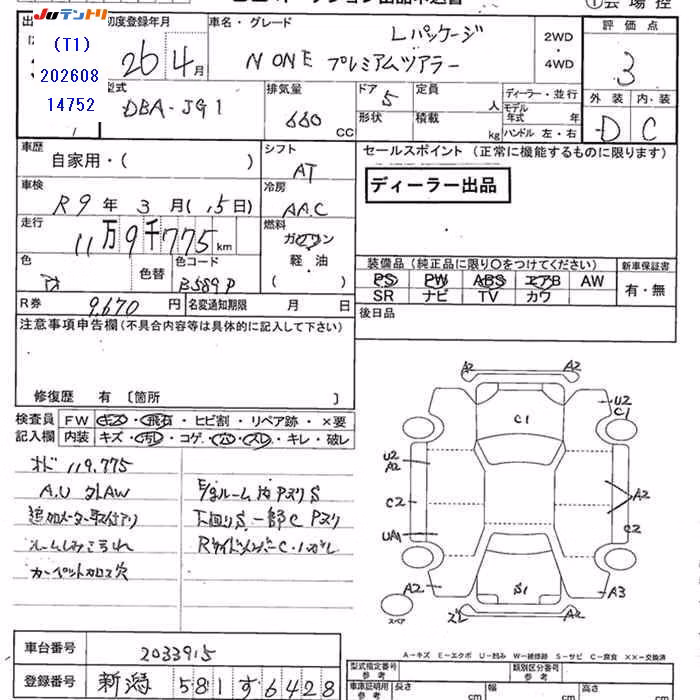 JUテントリ
(T1)
202608
14752
初度登録年月
26年4月
車名・グレード
Lパッケージ
N ONE プレミアムツアラー
2WD
・
4WD
評価点
3
外装 内・装
D C
型式
DBA-JG1
排気量
660 CC
ドア
5
形状
定員 人
積載 kg
ディーラー・並行
モデル年式 年
ハンドル 左・右
車歴
自家用・( )
シフト
AT
セールスポイント (正常に機能するものに限ります)
ディーラー出品
車検
R9年3月( 15日)
冷房
AAC
走行
11万9千775km
燃料
ガソリン
軽・油
( )
色
色替
色コード
B589P
装備品 (純正品に限り〇をつけてください)
PS PW ABS エアB AW
SR ナビ TV カワ
新車保証書
有・無
R券 9,670円
名変通知期限 月 日
後日品
注意事項申告欄(不具合内容等は具体的に記入して下さい)
修復歴 有〔箇所 〕
検査員記入欄
FW キズ・飛石・ヒビ割・リペア跡・×要
内装 キズ・汚レ・コゲ・穴・スレ・キレ・破レ
オド 119.775
A.U 外AW
追加メーター取付アリ
ルームしみこげれ
カーペットカロス穴
E/gルーム内PズリS
下回りS 一部C Pズリ
RサイドメンバーC・ハガレ
A2 A2
U2
C1
C1
U2
A2
C2
UA1
A2
C2
A2 S1 A3
ズレ A2
スペア
A-キズ E-エクボ U-凹み W-補修跡 S-サビ C-腐食 ××-交換済
車台番号 2033915
登録番号 新潟 581す6428
型式指定番号
参考
類別区分番号
参考
車庫証明用
参考
長さ cm 幅 cm 高さ cm